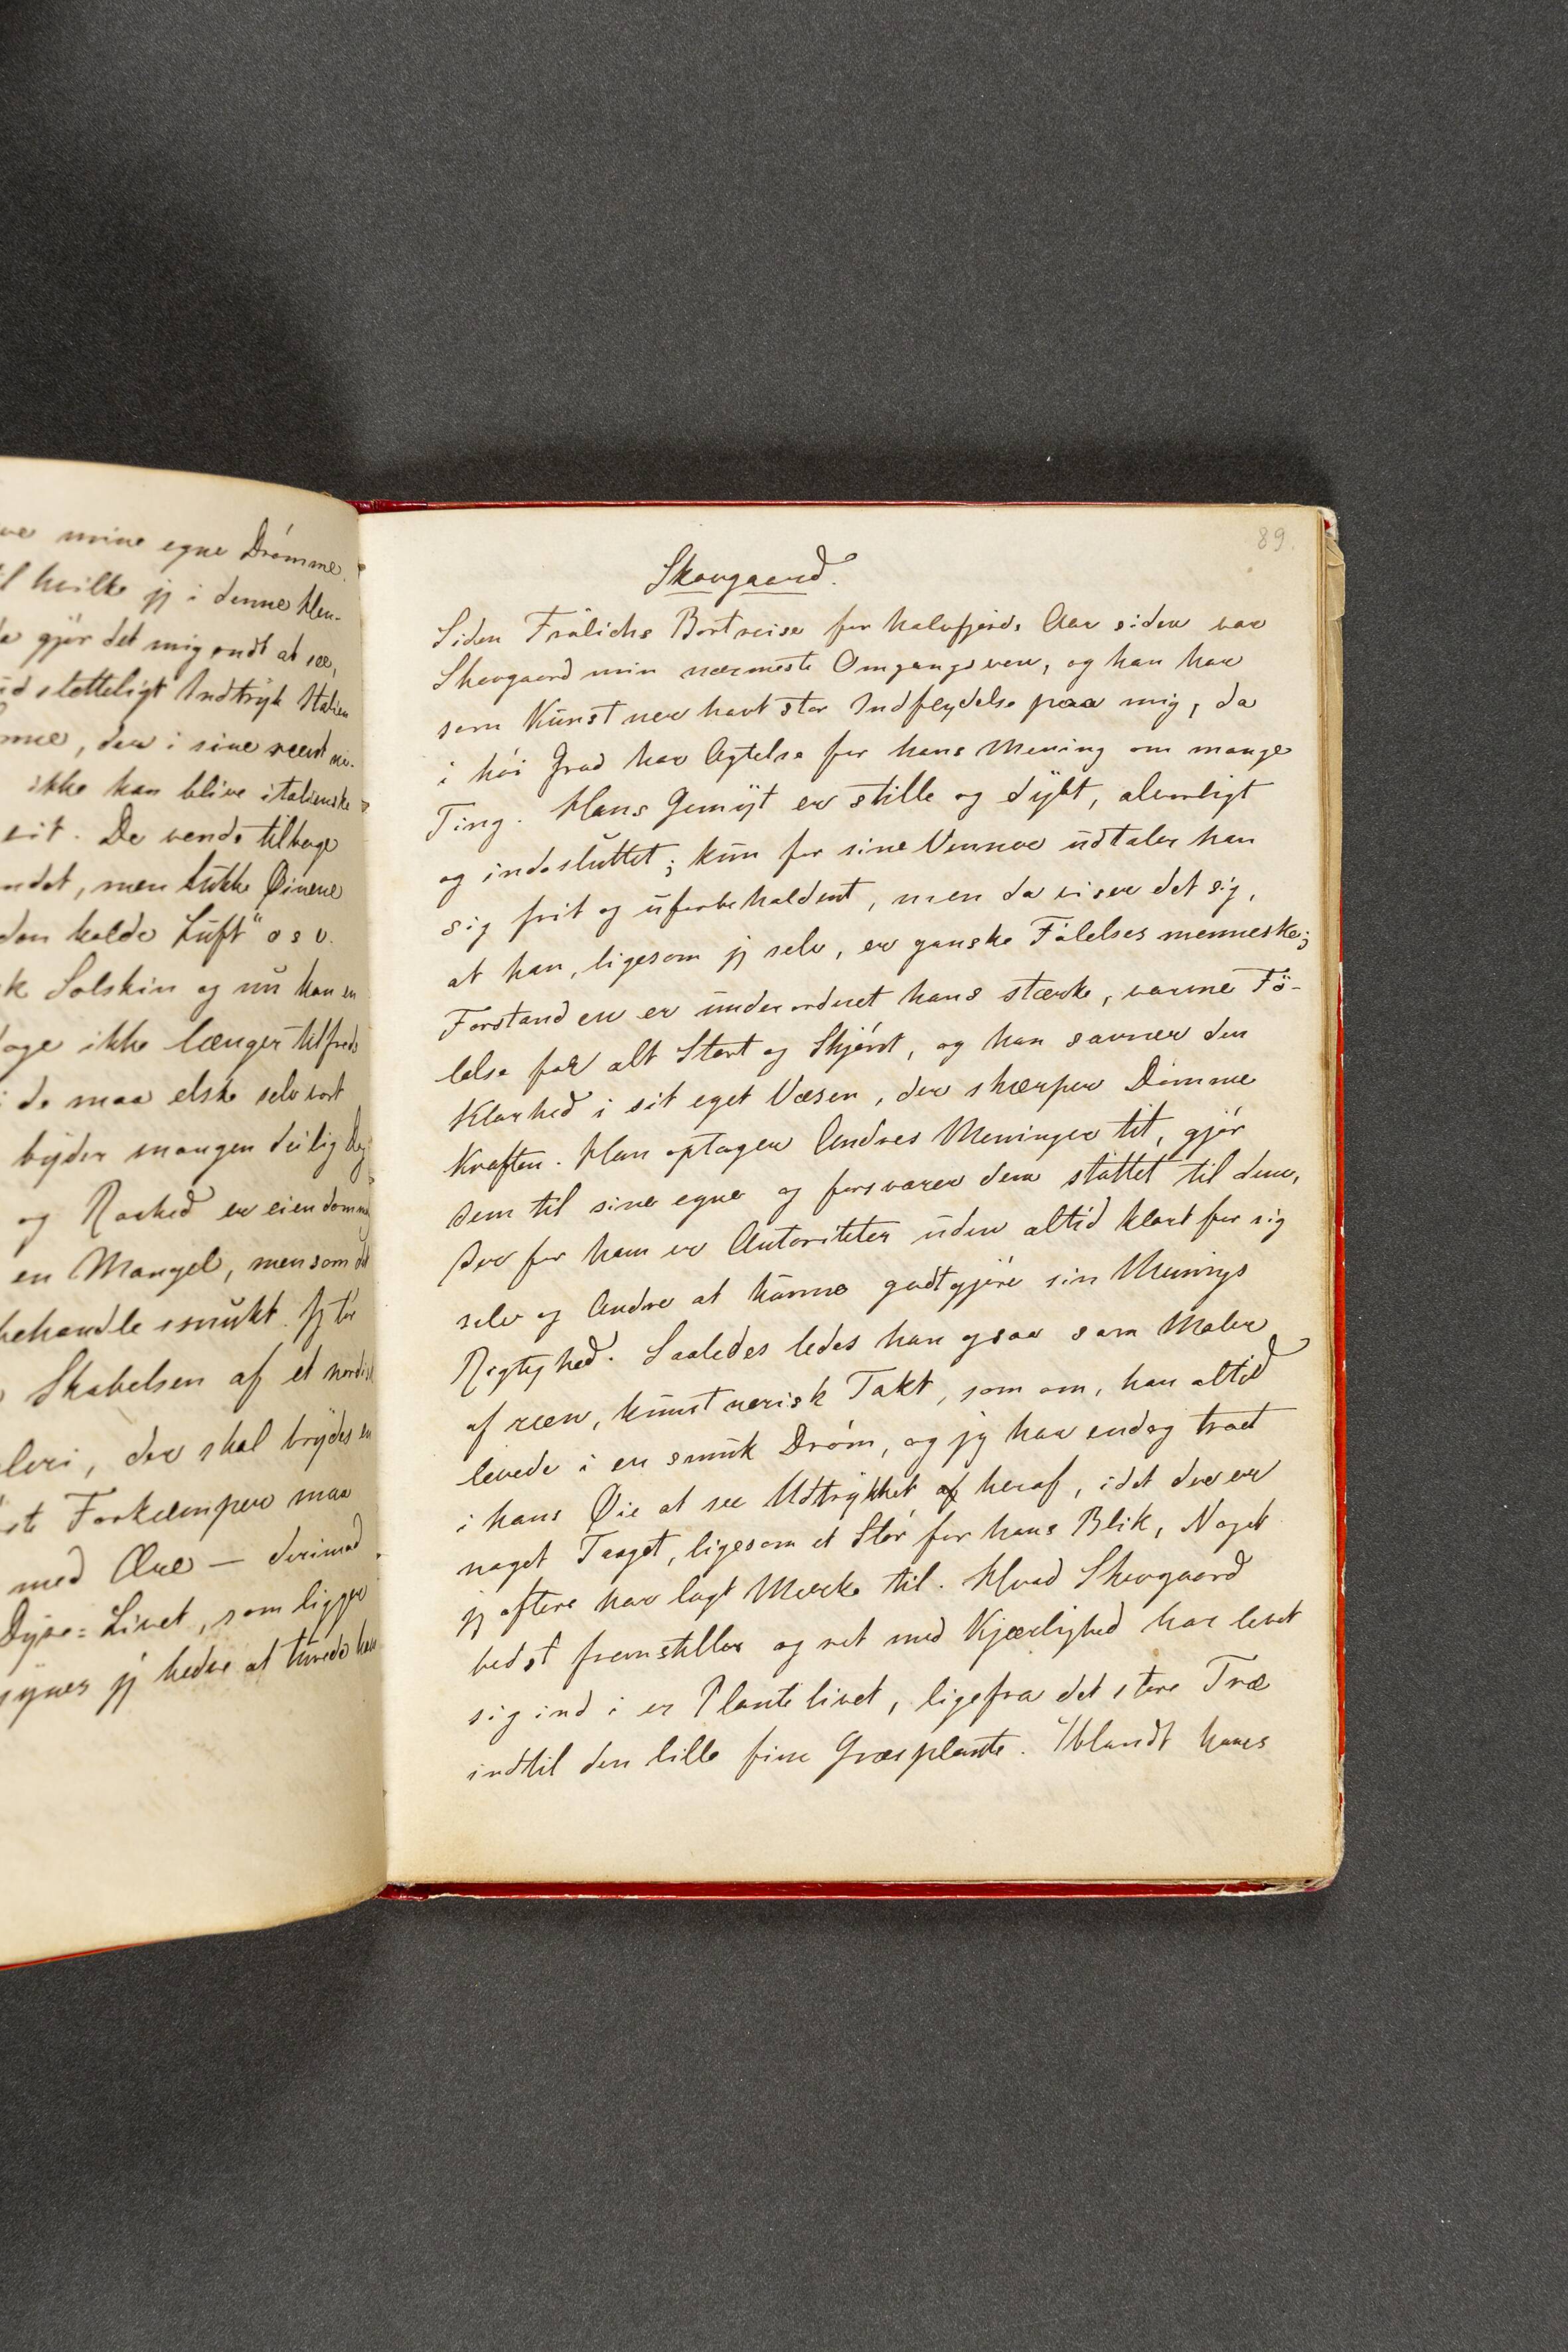 mine egne Drømme.
hvilke jg i denne Hen-
gjör det mig ondt at see,
Indtryk Italien
, der i sine
ikke kan blive italienske
sit. De vende tilbage
, men lukke Øinene
kolde Luft" o s v.
Solskin og nu kan en
ikke længer tilfreds
de maa elske selv vort
byder mangen deilig Dag
og Raahed er eiendomme
en Mangel, men som
behandle smukt. Jg tör
Skabelsen af et nordisk
, der skal brydes en
Forkæmper maa
med Ære — derimod
Dyre=Livet, som ligger
synes jg hedre at
89.
Skovgaard.
Siden Frølichs Bortreise for halvfjerde Aar siden var
Skovgaard min nærmeste Omgangsven, og han har
som Kunstner havt stor Indflydelse paa mig, da
i höi Grad har Agtelse for hans Mening om mange
Ting. Hans Gemyt er stille og dybt, alvorligt
og indesluttet; kun for sine Venner udtaler han
sig frit og uforbeholdent, men da viser det sig,
at han, ligesom jg selv, er ganske Følelsesmenneske;
Forstanden er underordnet hans stærke, varme Fö-
lelse for alt Stort og Skjönt, og han savner den
Klarhed i sit eget Væsen, der skærper Dömme
Kraften. Han optager Andres Meninger tit, gjör
dem til sine egne og forsvarer dem støttet til dem,
der for ham er Autoriteter uden altid klart for sig
selv og Andre at kunne godtgjöre sin Menings
Rigtighed. Saaledes ledes han ogsaa som Maler
af reen, kunstnerisk Takt, som om, han altid
levede i en smuk Dröm, og jg har endog troet
i hans Øie at see Udtrykket af heraf, idet der er
noget Taaget, ligesom et Slör for hans Blik, Noget
jg oftere har lagt Mærke til. Hvad Skovgaard
bedst fremstiller og ret med Kjærlighed har levet
sig ind i er Plantelivet, ligefra det store Træ
indtil den lille fine Græsplante. Iblandt hans